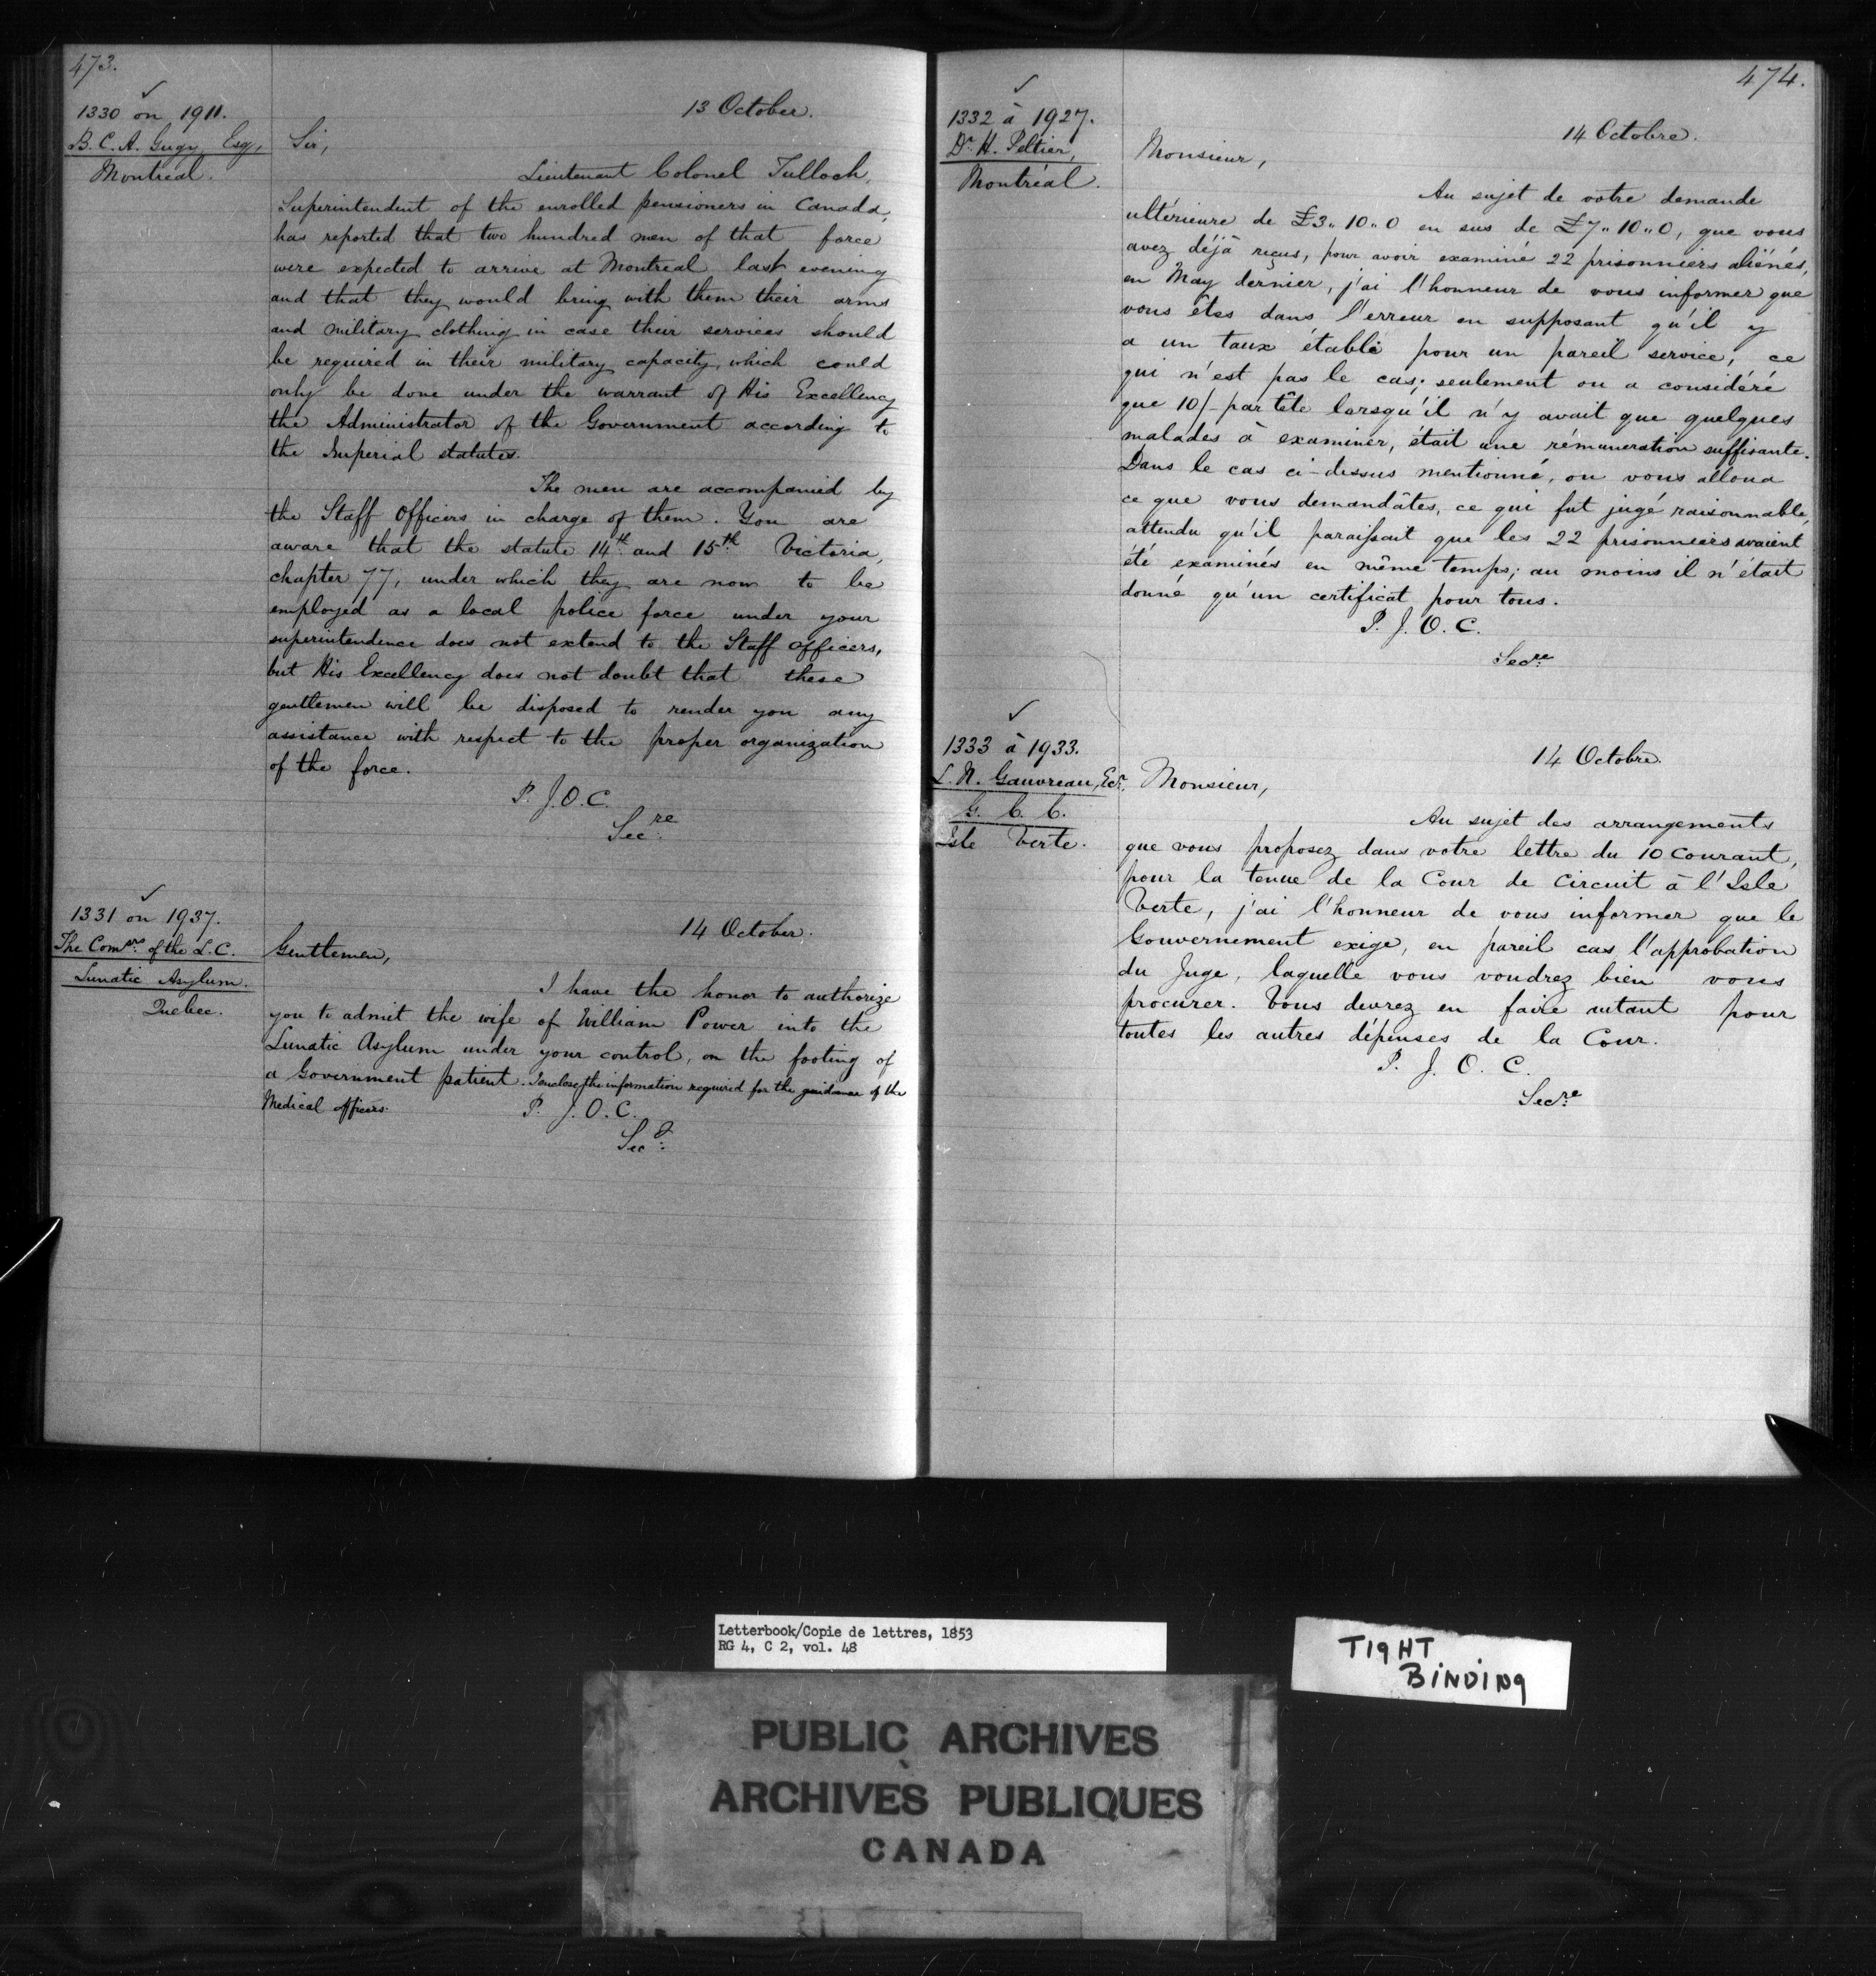 473.
✓
1330 on 1911.
B. C. A. Gugy, Esq,
Montreal.
13 October.
Sir,
Lieutenant Colonel Tulloch,
Superintendent of the enrolled pensioners in Canada,
has reported that two hundred men of that force
were expected to arrive at Montreal last evening
and that they would bring with them their arms
and military clothing in case their services should
be required in their military capacity, which could
only be done under the warrant of His Excellency
the Administrator of the Government according to
the Imperial statutes.
The men are accompanied by
the Staff Officers in charge of them. You are
aware that the statute 14th and 15th Victoria,
chapter 77, under which they are now to be
employed as a local police force under your
superintendence does not extend to the Staff officers,
but His Excellency does not doubt that these
gentlemen will be disposed to render you any
assistance with respect to the proper organization
of the force.
P. J. O. C.
Secre
✓
1331 on 1937.
The Comsrs of the L. C.
Lunatic Asylum.
Quebec.
14 October.
Gentlemen,
I have the honor to authorize
you to admit the wife of William Power into the
Lunatic Asylum under your control, on the footing of
a Government patient. I enclose the information required for the guidance of the
Medical officers.
P. J. O. C.
Secy
474.
✓
1332 à 1927.
Dr H. Peltier,
Montréal.
14 Octobre.
Monsieur,
Au sujet de votre demande
ultérieure de £3,,10,,0 en sus de £7,,10,,0, que vous
avez déjà reçus, pour avoir examiné 22 prisonniers aliénés,
en May dernier, j'ai l'honneur de vous informer que
vous êtes dans l'erreur en supposant qu'il y
a un taux établi pour un pareil service, ce
qui n'est pas le cas; seulement on a considéré
que 10/- par tête lorsqu'il n'y avait que quelques
malades à examiner, était une rémuneration suffisante.
Dans le cas ci-dessus mentionné, on vous alloua
ce que vous demandâtes, ce qui fut jugé raisonnable,
attendu qu'il paraissait que les 22 prisonniers avaient
été examinés en même temps; au moins il n'était
donné qu'un certificat pour tous.
P. J. O. C.
Secre
✓
1333 à 1933.
L. N. Gauvreau, Ecr.
G. C. C.
Isle Verte.
14 Octobre.
Monsieur,
Au sujet des arrangements
que vous proposez dans votre lettre du 10 Courant,
pour la tenue de la Cour de Circuit à l'Isle
Verte, j'ai l'honneur de vous informer que le
Gouvernement exige, en pareil cas l'approbation
du Juge, laquelle vous voudrez bien vous
procurer. Vous devrez en faire autant pour
toutes les autres dépenses de la Cour.
P. J. O. C.
Secre
Letterbook/Copie de lettres, 1853
RG 4, C 2, vol. 48
TIGHT
BINDING
PUBLIC ARCHIVES
ARCHIVES PUBLIQUES
CANADA